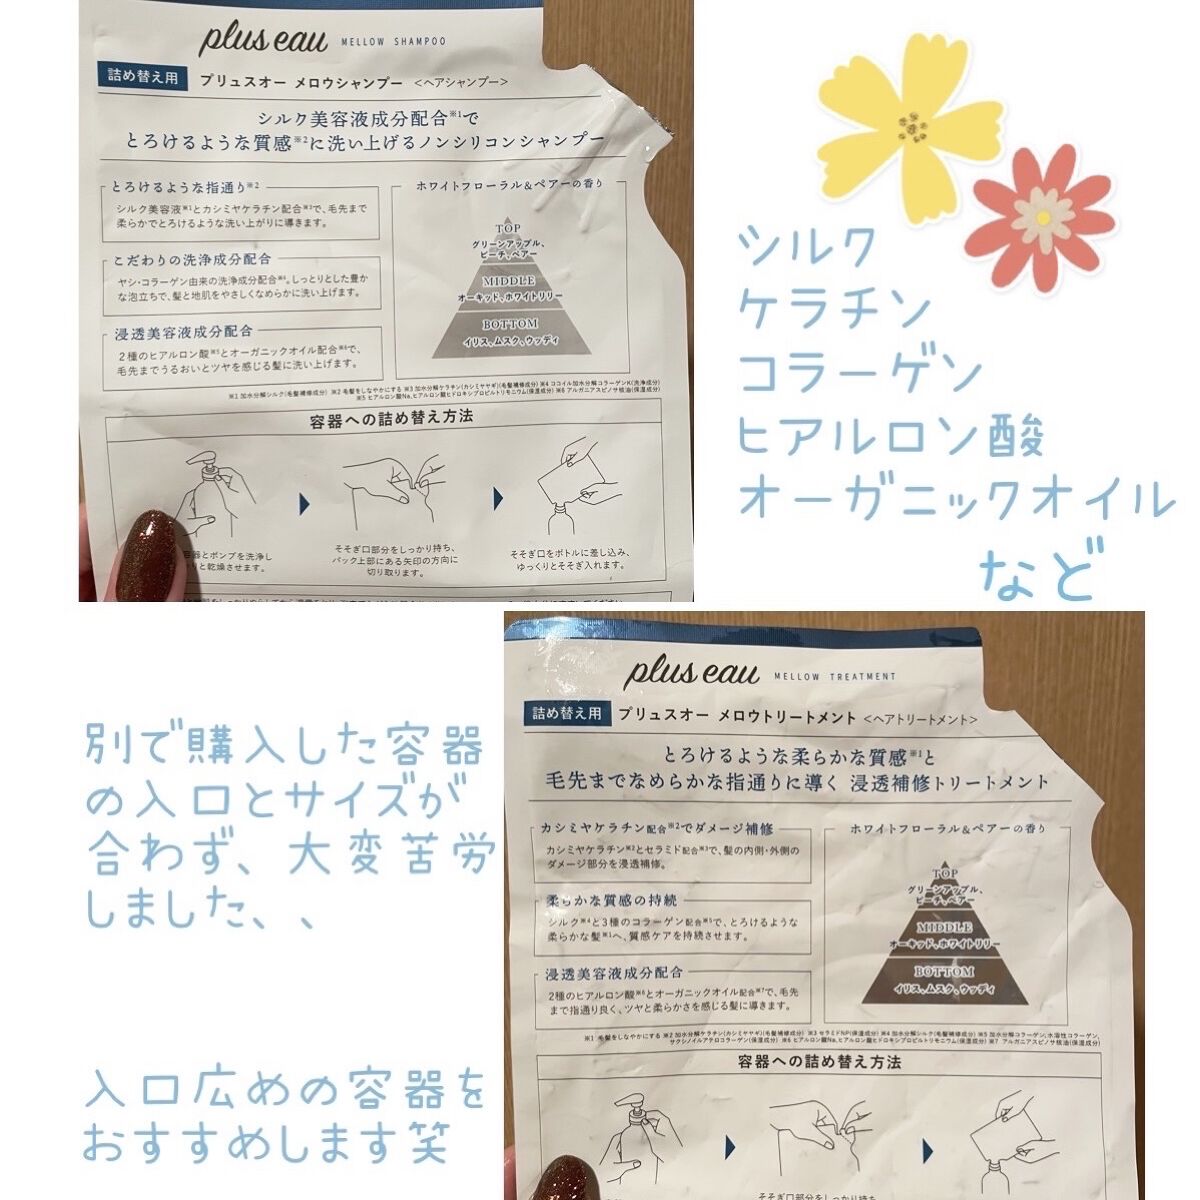 plus eau MELLOW SHAMPOO
詰め替え用 プリュスオー メロウシャンプー <ヘアシャンプー>
シルク美容液成分配合※1で
とろけるような質感※2に洗い上げるノンシリコンシャンプー
とろけるような指通り※2
シルク美容液※1とカシミヤケラチン配合※3で、毛先まで
柔らかでとろけるような洗い上がりに導きます。
こだわりの洗浄成分配合
ヤシ・コラーゲン由来の洗浄成分配合※4。しっとりとした豊か
な泡立ちで、髪と地肌をやさしくなめらかに洗い上げます。
浸透美容液成分配合
2種のヒアルロン酸※5とオーガニックオイル配合※6で、
毛先までうるおいとツヤを感じる髪に洗い上げます。
ホワイトフローラル&ペアーの香り
TOP
グリーンアップル、
ピーチ、ペアー
MIDDLE
オーキッド、ホワイトリリー
BOTTOM
イリス、ムスク、ウッディ
※1 加水分解シルク(毛髪補修成分) ※2 毛髪をしなやかにする ※3 加水分解ケラチン(カシミヤヤギ)(毛髪補修成分) ※4 ココイル加水分解コラーゲンK(洗浄成分)
※5 ヒアルロン酸Na、ヒアルロン酸ヒドロキシプロピルトリモニウム(保湿成分) ※6 アルガニアスピノサ核油(保湿成分)
容器への詰め替え方法
容器とポンプを洗浄し
りと乾燥させます。
そそぎ口部分をしっかり持ち、
パック上部にある矢印の方向に
切り取ります。
そそぎ口をボトルに差し込み、
ゆっくりとそそぎ入れます。
シルク
ケラチン
コラーゲン
ヒアルロン酸
オーガニックオイル
など
別で購入した容器
の入口とサイズが
合わず、大変苦労
しました、、
入口広めの容器を
おすすめします笑
plus eau MELLOW TREATMENT
詰め替え用 プリュスオー メロウトリートメント <ヘアトリートメント>
とろけるような柔らかな質感※1と
毛先までなめらかな指通りに導く 浸透補修トリートメント
カシミヤケラチン配合※2でダメージ補修
カシミヤケラチン※2とセラミド配合※3で、髪の内側・外側の
ダメージ部分を浸透補修。
柔らかな質感の持続
シルク※4と3種のコラーゲン配合※5で、とろけるような
柔らかな髪※1へ、質感ケアを持続させます。
浸透美容液成分配合
2種のヒアルロン酸※6とオーガニックオイル配合※7で、毛先
まで指通り良く、ツヤと柔らかさを感じる髪に導きます。
ホワイトフローラル&ペアーの香り
TOP
グリーンアップル、
ピーチ、ペアー
MIDDLE
オーキッド、ホワイトリリー
BOTTOM
イリス、ムスク、ウッディ
※1 毛髪をしなやかにする ※2 加水分解ケラチン(カシミヤヤギ)(毛髪補修成分) ※3 セラミドNP(保湿成分) ※4 加水分解シルク(毛髪補修成分) ※5 加水分解コラーゲン、水溶性コラーゲン、
サクシノイルアテロコラーゲン(保湿成分) ※6 ヒアルロン酸Na、ヒアルロン酸ヒドロキシプロピルトリモニウム(保湿成分) ※7 アルガニアスピノサ核油(保湿成分)
容器への詰め替え方法
そそぎ口部分をしっかり持ち、